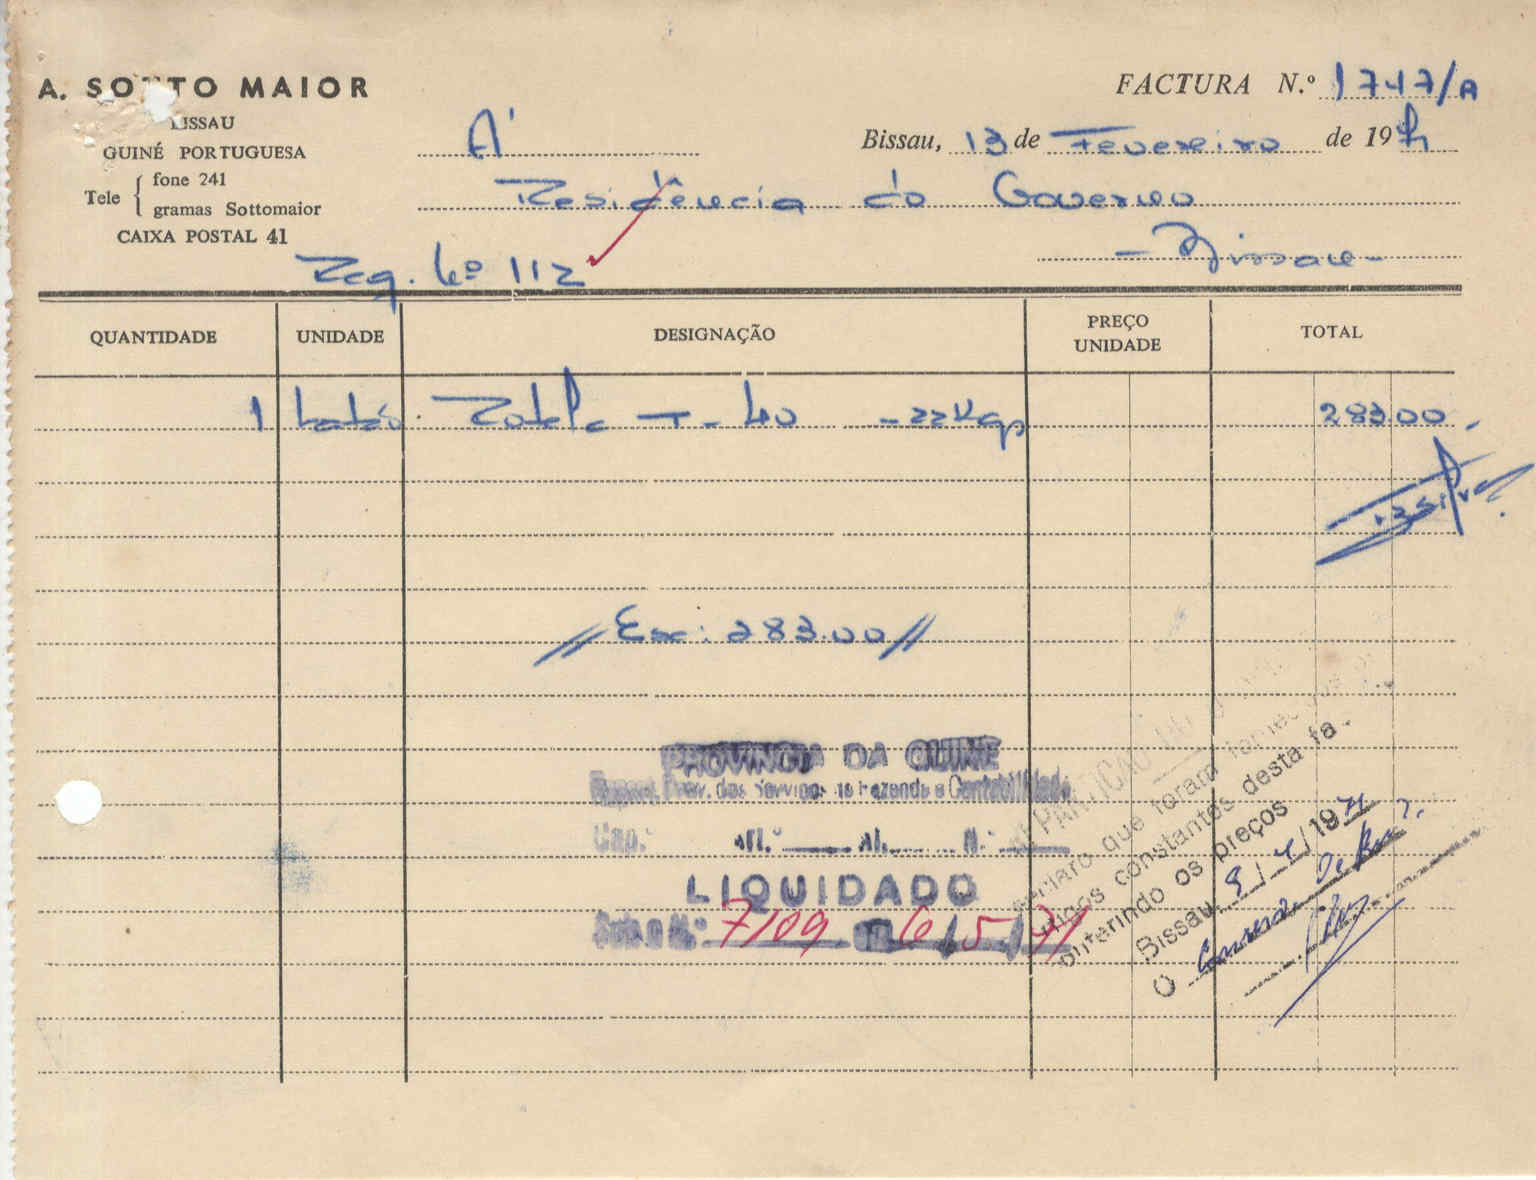 A. SOUTO MAIOR
BISSAU
GUINÉ PORTUGUESA
Tele { fone 241
gramas Sottomaior
CAIXA POSTAL 41
FACTURA N.º 1747/A
Bissau, 13 de Fevereiro de 1971
À
Residência do Governo
- Bissau -
Req. Nº 112
QUANTIDADE UNIDADE DESIGNAÇÃO PREÇO UNIDADE TOTAL
1 Rotela T-40 -22Kgs 283.00
// Esc: 283.00 //
PROVINCIA DA GUINE
Repart. Prov. dos Serviços de Fazenda e Contabilidade
Cap.º Art.º Al. N.º
LIQUIDADO
N.º 7109 6/5/71
Declaro que foram fornecidos os
artigos constantes desta fa-
conferindo os preços
Bissau, 9/4/1971
O